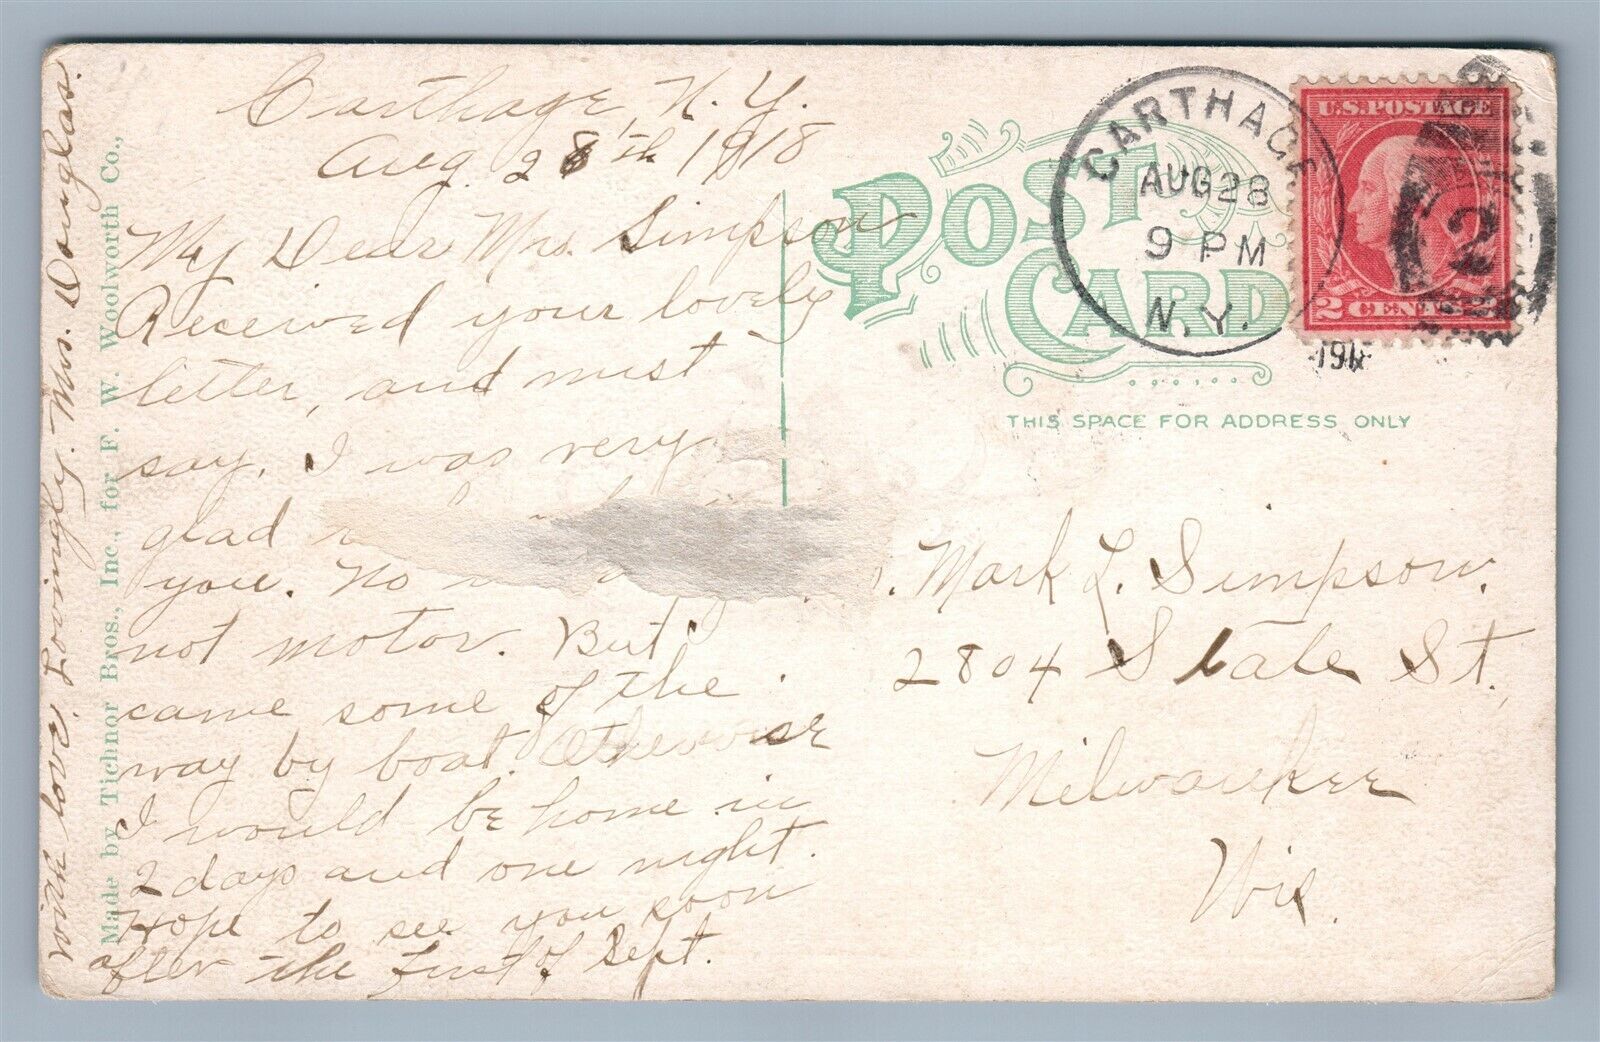 Carthage, N. Y.
Aug. 28th 1918
My Dear Mrs. Simpson
Received your lovely
letter, and must
say, I was very
glad
you. No
not motor. But
came some of the
way by boat. Otherwise
I would be home in
2 days and one night.
Hope to see you soon
after the first of Sept.
With love. Lovingly. Mrs. Douglas.
Made by Tichnor Bros., Inc., for F. W. Woolworth Co.,
POST CARD
THIS SPACE FOR ADDRESS ONLY
CARTHAGE
AUG 28
9 PM
N.Y.
191
U.S. POSTAGE
2 CENTS 2
2
Mark L. Simpson.
2804 State St.,
Milwaukee
Wis.